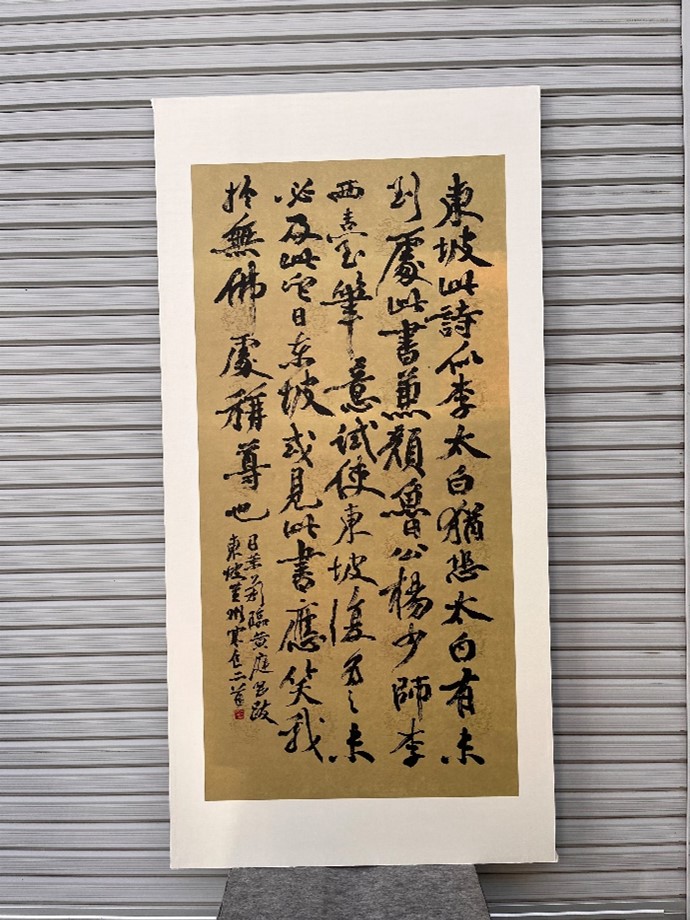 東坡此詩似李太白猶恐太白有未
到處此書兼顏魯公楊少師李
西臺筆意試使東坡復為之未
必及此它日東坡或見此書應笑我
於無佛處稱尊也
臨黃庭堅跋
東坡黃州寒食二首